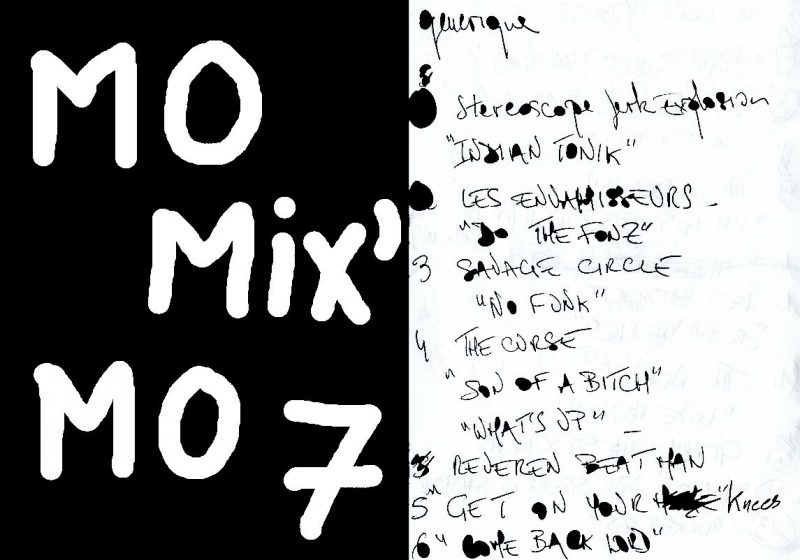 MO
Mix'
MO 7
generique
Stereoscope Jerk Explosion
"INDIAN TONIK"
LES ENVAHISSEURS -
"DO THE FONZ"
3 SAVAGE CIRCLE
"NO FUNK"
4 THE CURSE
"SON OF A BITCH"
"WHAT'S UP?" -
REVEREN BEATMAN
5 "GET ON YOUR "Knees
6 " COME BACK LORD"